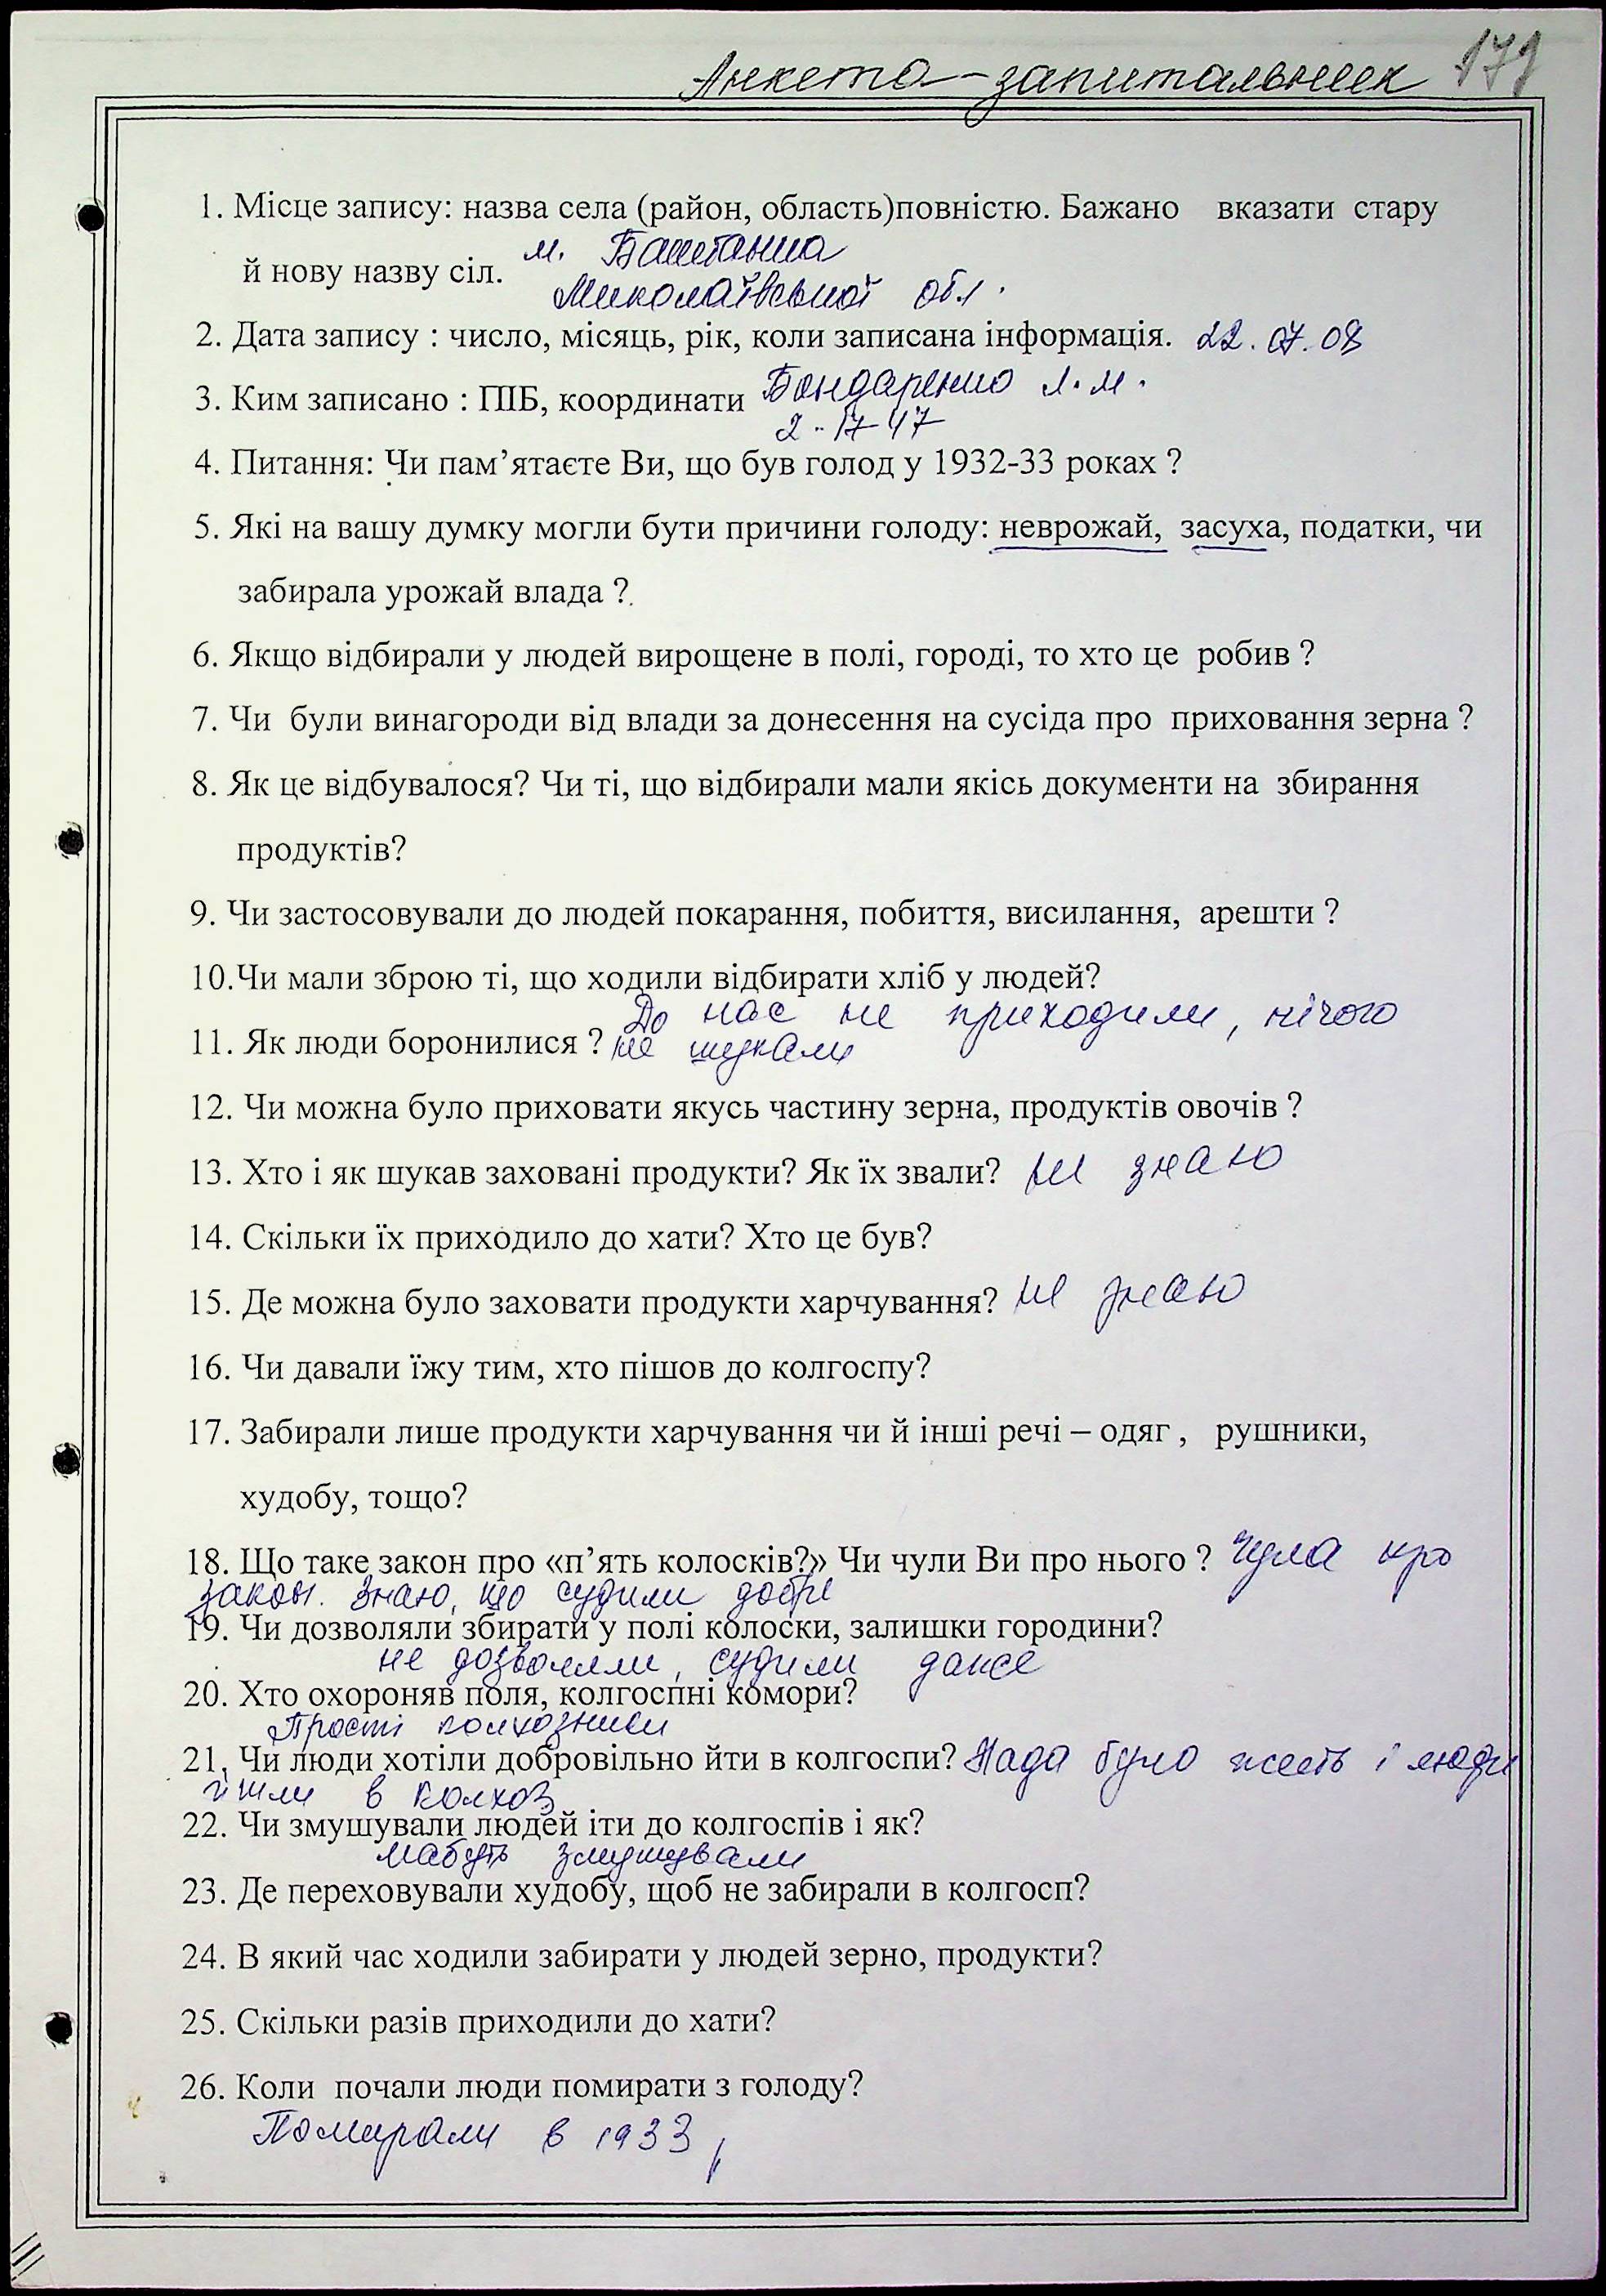 Анкета-запитальник 179
1. Місце запису: назва села (район, область)повністю. Бажано вказати стару
й нову назву сіл. м. Баштанка
Миколаївської обл.
2. Дата запису : число, місяць, рік, коли записана інформація. 22.07.08
3. Ким записано : ПІБ, координати Бондаренко Л.М.
2-17-47
4. Питання: Чи пам’ятаєте Ви, що був голод у 1932-33 роках ?
5. Які на вашу думку могли бути причини голоду: неврожай, засуха, податки, чи
забирала урожай влада ?
6. Якщо відбирали у людей вирощене в полі, городі, то хто це робив ?
7. Чи були винагороди від влади за донесення на сусіда про приховання зерна ?
8. Як це відбувалося? Чи ті, що відбирали мали якісь документи на збирання
продуктів?
9. Чи застосовували до людей покарання, побиття, висилання, арешти ?
10.Чи мали зброю ті, що ходили відбирати хліб у людей?
До нас не приходили, нічого
11. Як люди боронилися ? не шукали
12. Чи можна було приховати якусь частину зерна, продуктів овочів ?
13. Хто і як шукав заховані продукти? Як їх звали? не знаю
14. Скільки їх приходило до хати? Хто це був?
15. Де можна було заховати продукти харчування? не знаю
16. Чи давали їжу тим, хто пішов до колгоспу?
17. Забирали лише продукти харчування чи й інші речі – одяг , рушники,
худобу, тощо?
18. Що таке закон про «п’ять колосків?» Чи чули Ви про нього ? Чула про
закон. Знаю, що судили добре
19. Чи дозволяли збирати у полі колоски, залишки городини?
не дозволяли, судили даже
20. Хто охороняв поля, колгоспні комори?
Прості колхозники
21. Чи люди хотіли добровільно йти в колгоспи? Нада було жить і люди
йшли в колхоз
22. Чи змушували людей іти до колгоспів і як?
мабуть змушували
23. Де переховували худобу, щоб не забирали в колгосп?
24. В який час ходили забирати у людей зерно, продукти?
25. Скільки разів приходили до хати?
26. Коли почали люди помирати з голоду?
Помирали в 1933